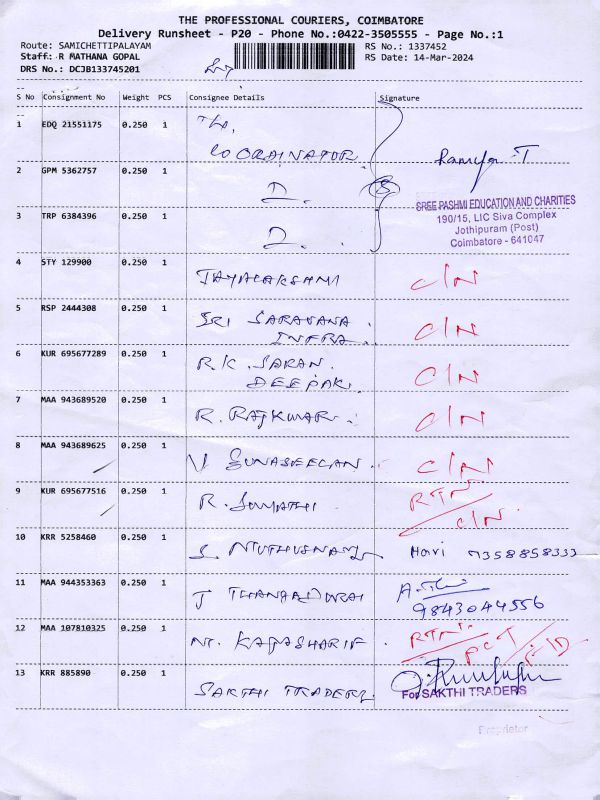 THE PROFESSIONAL COURIERS, COIMBATORE
Delivery Runsheet - P20 - Phone No.:0422-3505555 - Page No.:1
Route: SAMICHETTIPALAYAM
RS No.: 1337452
Staff: R MATHANA GOPAL
RS Date: 14-Mar-2024
DRS No.: DCJB133745201
S No Consignment No Weight PCS Consignee Details Signature
1 EDQ 21551175 0.250 1 The,
COORDINATOR Ramya T
2 GPM 5362757 0.250 1 D. (3)
SREE PASHMI EDUCATION AND CHARITIES
190/15, LIC Siva Complex
Jothipuram (Post)
Coimbatore - 641047
3 TRP 6384396 0.250 1 D.
4 STY 129900 0.250 1 JAYALAKSHMI C/N
5 RSP 2444308 0.250 1 SRI SARAVANA
INFRA. C/N
6 KUR 695677289 0.250 1 R.K. SARAN
DEEPAK. C/N
7 MAA 943689520 0.250 1 R. RAJKUMAR. C/N
8 MAA 943689625 0.250 1 V GUNASEELAN. C/N
9 KUR 695677516 0.250 1 R. SUMATHI RTN
C/N.
10 KRR 5258460 0.250 1 S MUTHUSWAMY Hari 7358858333
11 MAA 944353363 0.250 1 J THANGADURAI
9843044556
12 MAA 107810325 0.250 1 M. KAJASHARIF RTN.
PCT
13 KRR 885890 0.250 1 SAKTHI TRADERS
For SAKTHI TRADERS
Proprietor